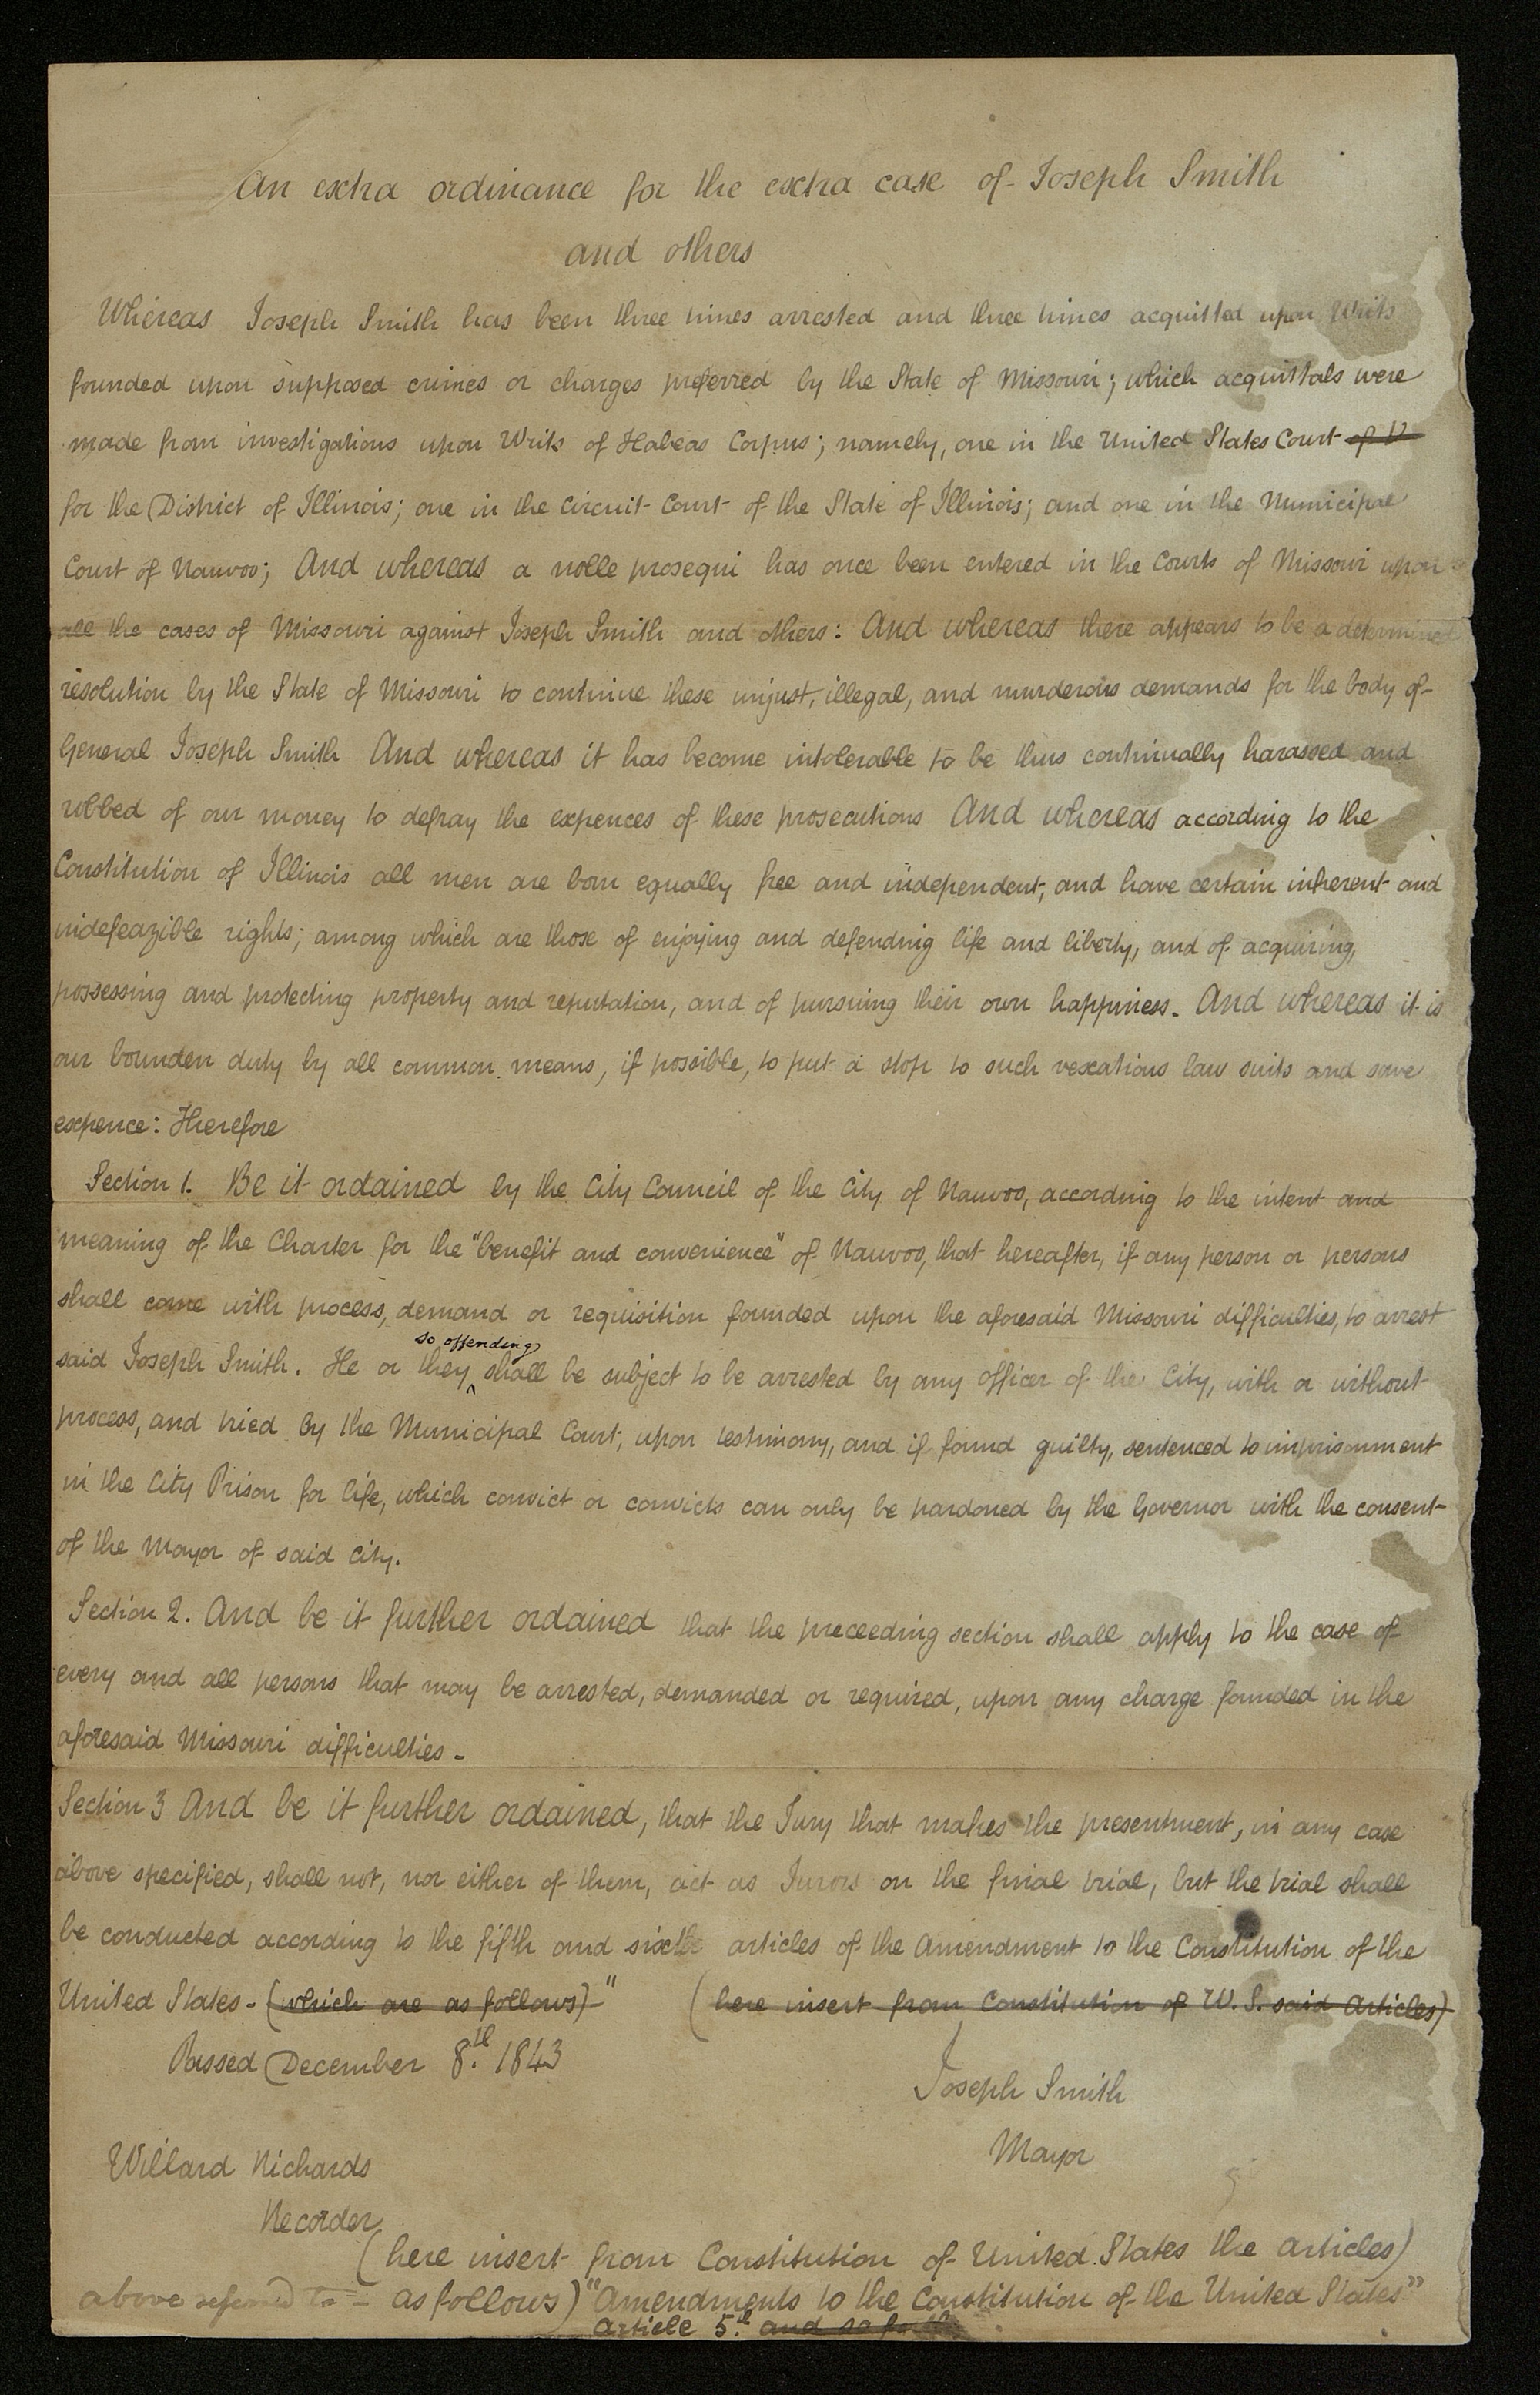 An extra ordinance for the extra case of Joseph Smith
and others
Whereas Joseph Smith has been three times arrested and three times acquitted upon Writs
founded upon supposed crimes or charges preferred by the State of Missouri; which acquittals were
made from investigations upon Writs of Habeas Corpus; namely, one in the United States Court of U
for the District of Illinois; one in the Circuit Court of the State of Illinois; and one in the Municipal
Court of Nauvoo; And whereas a nolle prosequi has once been entered in the Courts of Missouri upon
all the cases of Missouri against Joseph Smith and others: And whereas there appears to be a determined
resolution by the State of Missouri to continue these unjust, illegal, and murderous demands for the body of
General Joseph Smith And whereas it has become intolerable to be thus continually harassed and
robbed of our money to defray the expences of these prosecutions And whereas according to the
Constitution of Illinois all men are born equally free and independent, and have certain inherent and
indefeazible rights; among which are those of enjoying and defending life and liberty, and of acquiring,
possessing and protecting property and reputation, and of pursuing their own happiness. And whereas it is
our bounden duty by all common means, if possible, to put a stop to such vexatious law suits and save
expence: Therefore
Section 1. Be it ordained by the City Council of the City of Nauvoo, according to the intent and
meaning of the Charter for the "benefit and convenience" of Nauvoo, that hereafter, if any person or persons
shall come with process, demand or requisition founded upon the aforesaid Missouri difficulties, to arrest
said Joseph Smith. He or they so offending shall be subject to be arrested by any officer of the City, with or without
process, and tried by the Municipal Court, upon testimony, and if found guilty, sentenced to imprisonment
in the City Prison for life, which convict or convicts can only be pardoned by the Governor with the consent
of the Mayor of said City.
Section 2. And be it further ordained that the preceeding section shall apply to the case of
every and all persons that may be arrested, demanded or required, upon any charge founded in the
aforesaid Missouri difficulties -
Section 3 And be it further ordained, that the Jury that makes the presentment, in any case
above specified, shall not, nor either of them, act as Jurors on the final trial, but the trial shall
be conducted according to the fifth and sixth articles of the Amendment to the Constitution of the
United States - (which are as follows)-" (here insert from Constitution of U. S. said Articles)
Passed December 8.th 1843
Joseph Smith
Mayor
Willard Richards
Recorder
(here insert from Constitution of United States the articles)
above referred to = as follows) "Amendments to the Constitution of the United States"
Article 5.th and so forth